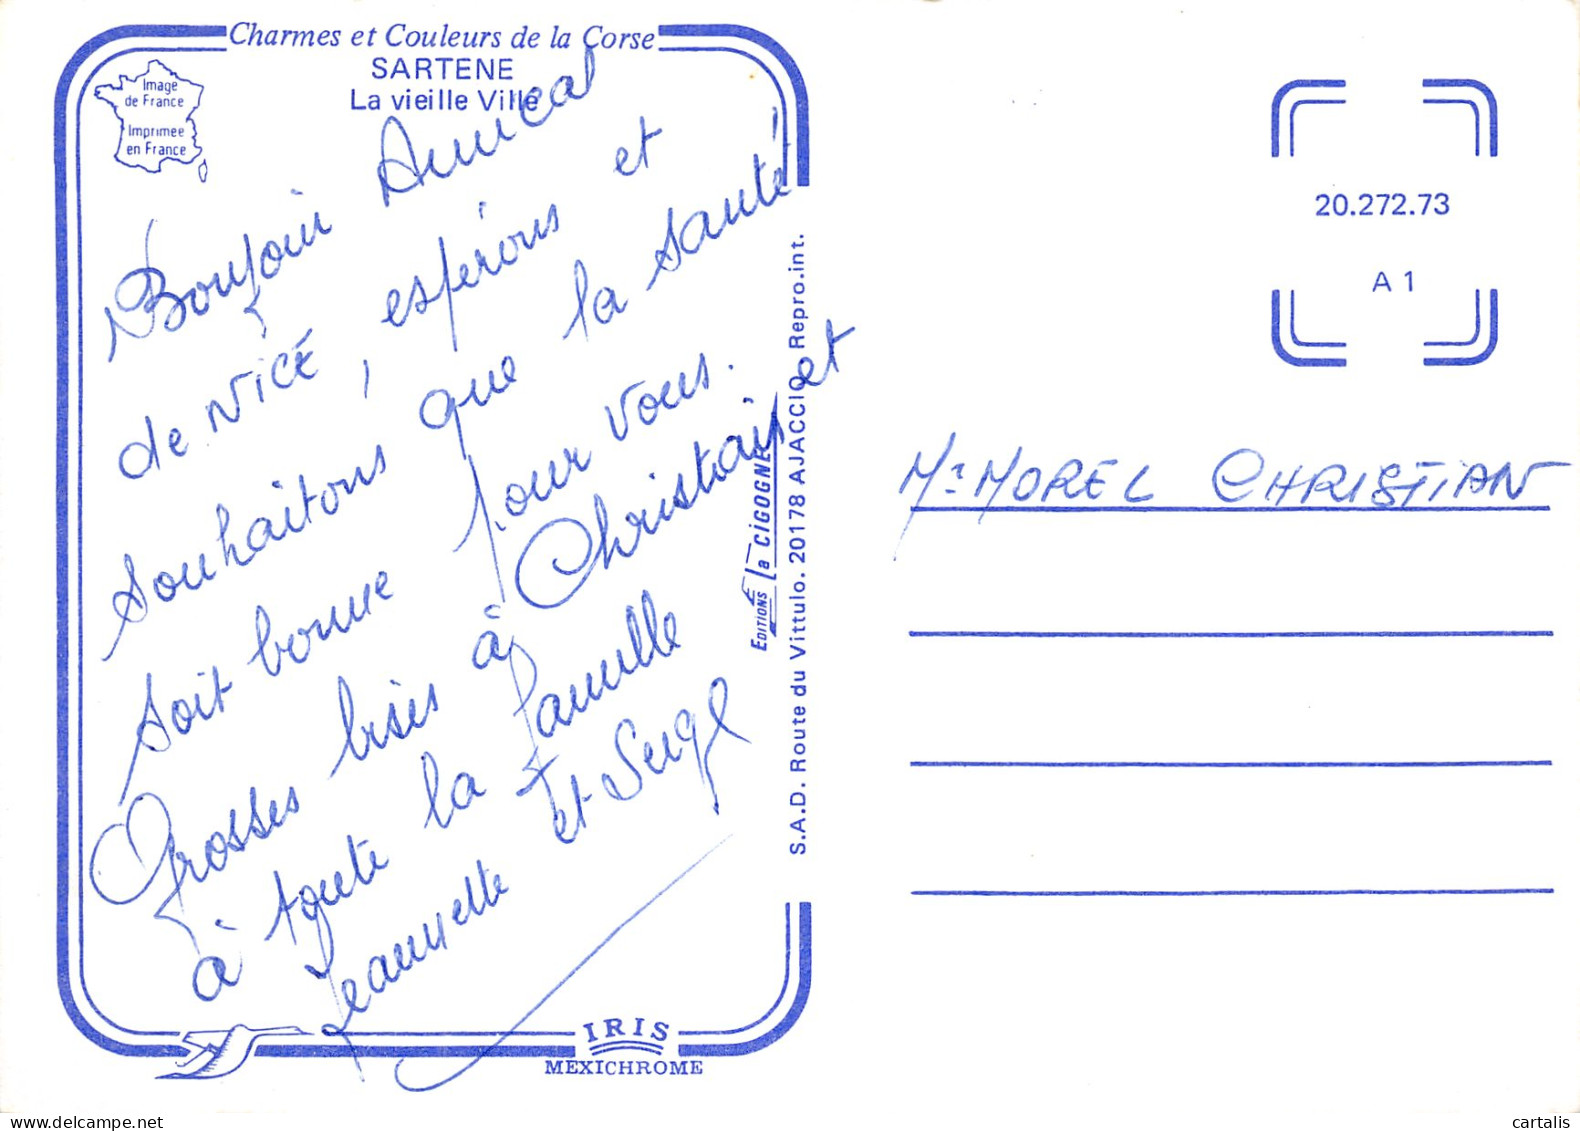 Charmes et Couleurs de la Corse
SARTENE
La vieille Ville
Image
de France
Imprimée
en France
Bonjour Amical
de NicE, espérons et
souhaitons que la santé
soit bonne pour vous.
Grosses bises à Christian et
à toute la famille
Jeannette et Serge
EDITIONS La CIGOGNE
S.A.D. Route du Vittulo. 20178 AJACCIO Repro.int.
IRIS
MEXICHROME
20.272.73
A 1
Mr MOREL CHRISTIAN
delcampe.net
cartalis